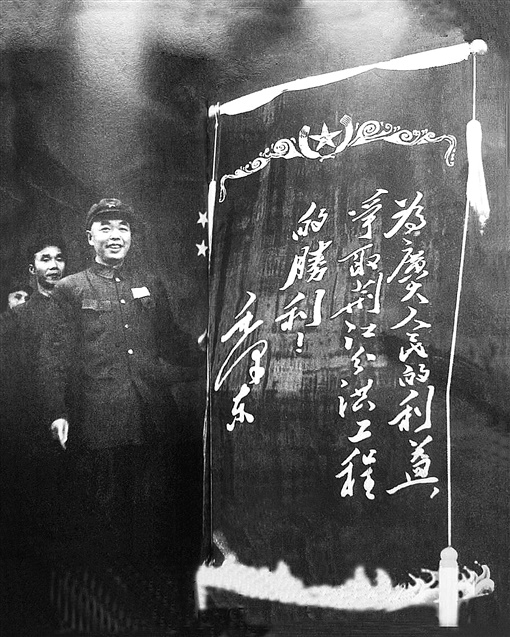 为廣大人民的利益
爭取荆江分洪工程
的勝利！
毛泽东